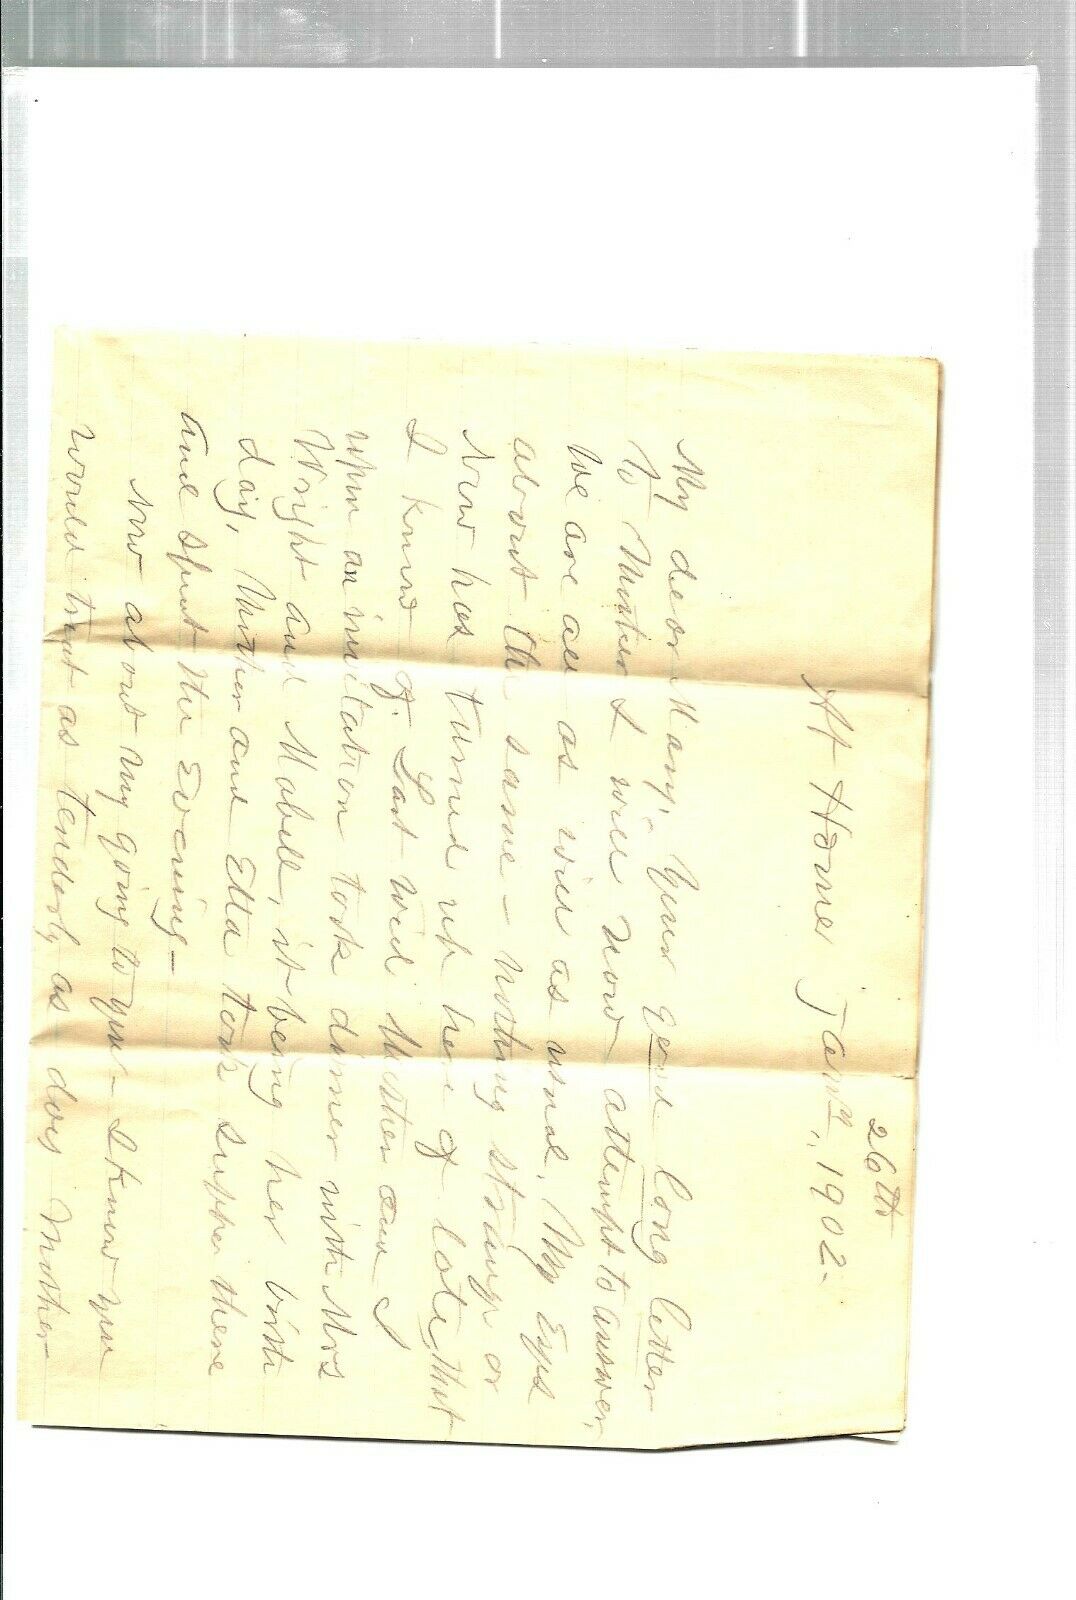 26th
At Home Jany., 1902-
My dear Mary, Your good long letter
to Mother I will now attempt to answer,
We are all as well as usual, My Eyes
about the same - nothing strange or
New has turned up here of late, that
I know of. Last Wed Mother and I
upon an invitation took dinner with Mrs
Wright and Mabell, it being her birth
day, Mother and Etta took supper there
and spent the Evening -
Now about my going to you - I know you
would treat as tenderly as does Mother